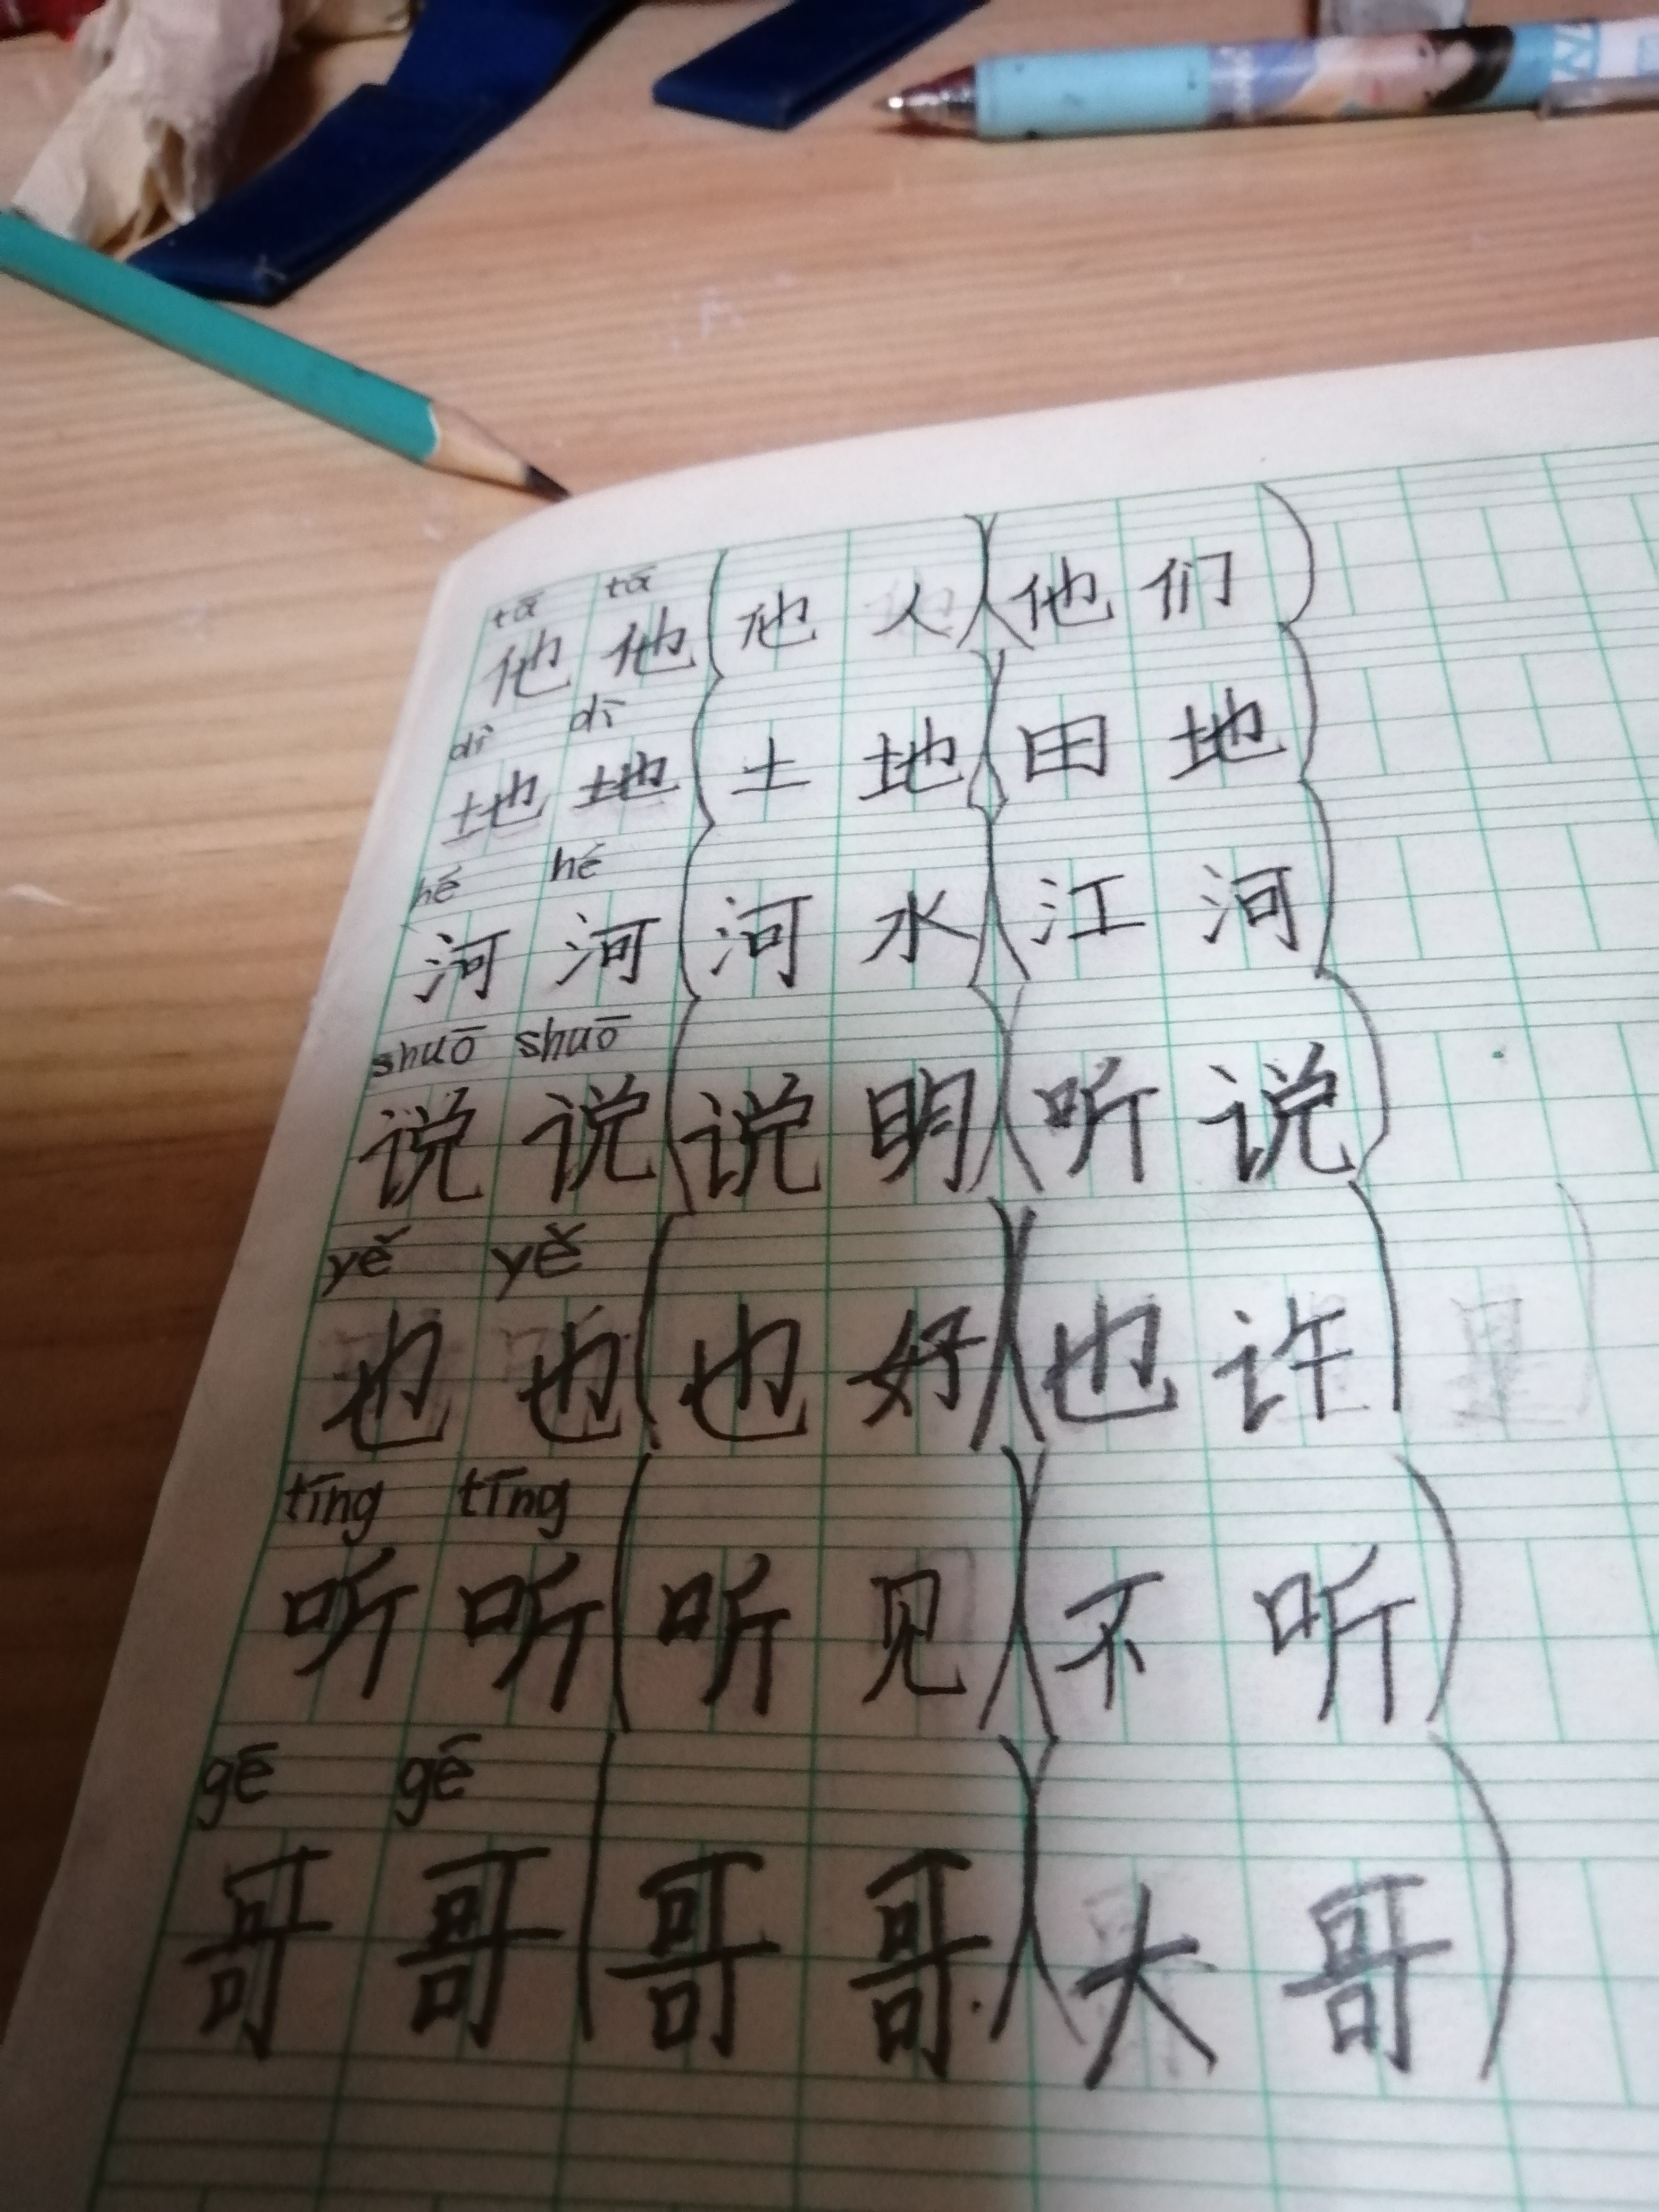 tā tā
他 他 (他 人) (他 们)
dì dì
地 地 (土 地) (田 地)
hé hé
河 河 (河 水) (江 河)
shuō shuō
说 说 (说 明) (听 说)
yě yě
也 也 (也 好) (也 许)
tīng tīng
听 听 (听 见) (不 听)
gē gē
哥 哥 (哥 哥) (大 哥)